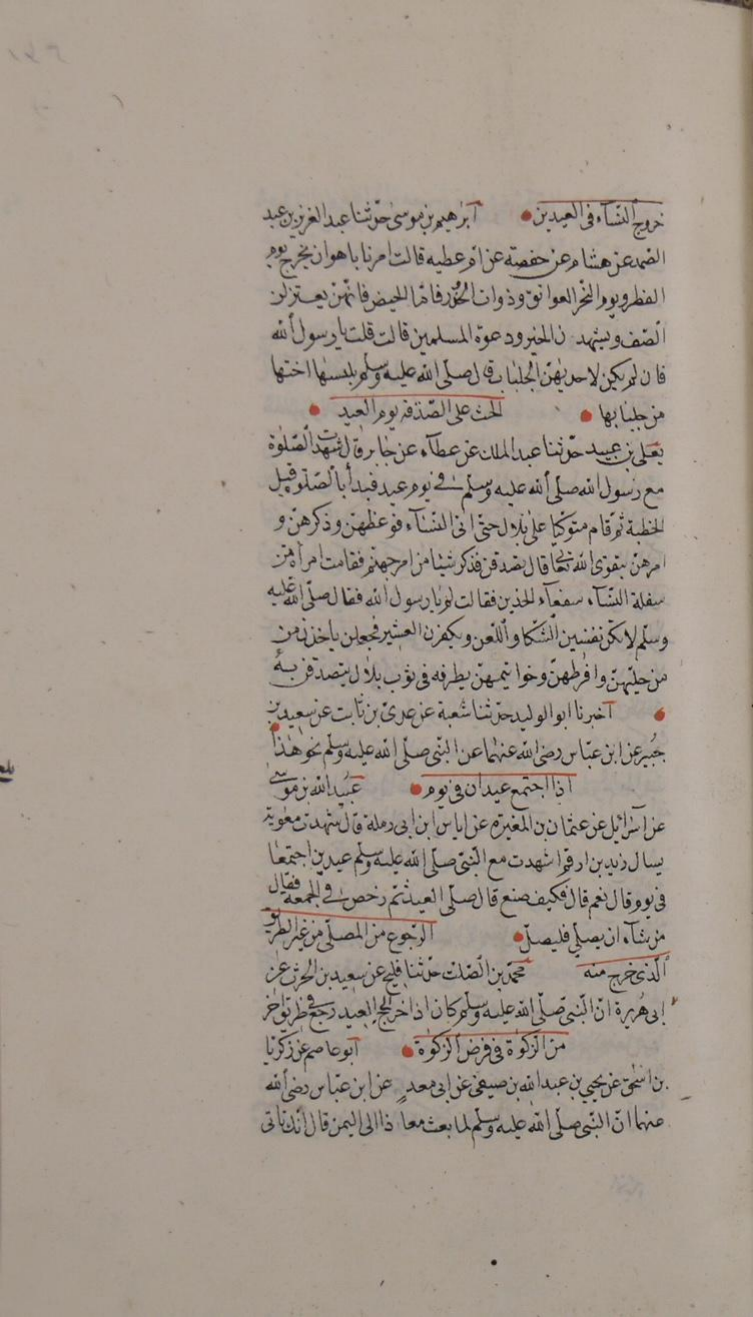 خروج النسآء فى العيدين ابرهيم بن موسى حدثنا عبد العزيز بن عبد
الصمد عن هشام عن حفصة عن ام عطيه قالت امرنا باهو ان يخرج يوم
الفطر ويوم النحر العواتق وذوات الخدر فاما الحيض فانهن يعتزلن
الصف ويشهدن الخير ودعوة المسلمين قالت قلت يا رسول الله
فان لم يكن لاحديهن الجلباب قال صلى الله عليه وسلم يلبسها اختها
من جلبابها الحث على الصدقة يوم العيد
يعلى بن عبيد حدثنا عبد الملك عن عطآء عن جابر قال شهدت الصلوة
مع رسول الله صلى الله عليه وسلم فى يوم عيد فبدأ بالصلوة قبل
الخطبة ثم قام متوكيا على بلال حتى اتى النسآء فوعظهن وذكرهن و
امرهن بتقوى الله تعالى قال تصدقن فذكر شيئا من امر جهنم فقامت امرأة من
سفلة النسآء سفعآء الخدين فقالت لم يا رسول الله فقال صلى الله عليه
وسلم لانكن تفشين الشكاة واللعن وتكفرن العشير فجعلن ياخذن من
من حليهن واقرطهن وخواتيمهن يطرحنه فى ثوب بلال يتصدقن به
اخبرنا ابو الوليد حدثنا شعبة عن عدى بن ثابت عن سعيد بن
جبير عن ابن عباس رضى الله عنهما عن النبى صلى الله عليه وسلم نحو هذا
اذا اجتمع عيدان فى يوم عبيد الله بن موسى
عن اسرائيل عن عثمان بن المغيرة عن اياس ابن ابى رملة قال شهدت معوية
يسال زيد بن ارقم اشهدت مع النبى صلى الله عليه وسلم عيدين اجتمعا
فى يوم قال نعم قال فكيف صنع قال صلى العيد ثم رخص فى الجمعة فقال
من شآء ان يصلى فليصل الرجوع من المصلى من غير الطريق
الذى خرج منه محمد بن الصلت حدثنا فليح عن سعيد بن الحرث عن
ابى هريرة ان النبى صلى الله عليه وسلم كان اذا خرج الى العيد رجع فى طريق اخر
من الزكوة فى فرض الزكوة ابو عاصم عن زكريا
بن اسحق عن يحيى بن عبد الله بن صيفى عن ابى معبد عن ابن عباس رضى الله
عنهما ان النبى صلى الله عليه وسلم لما بعث معاذا الى اليمن قال انك تاتى